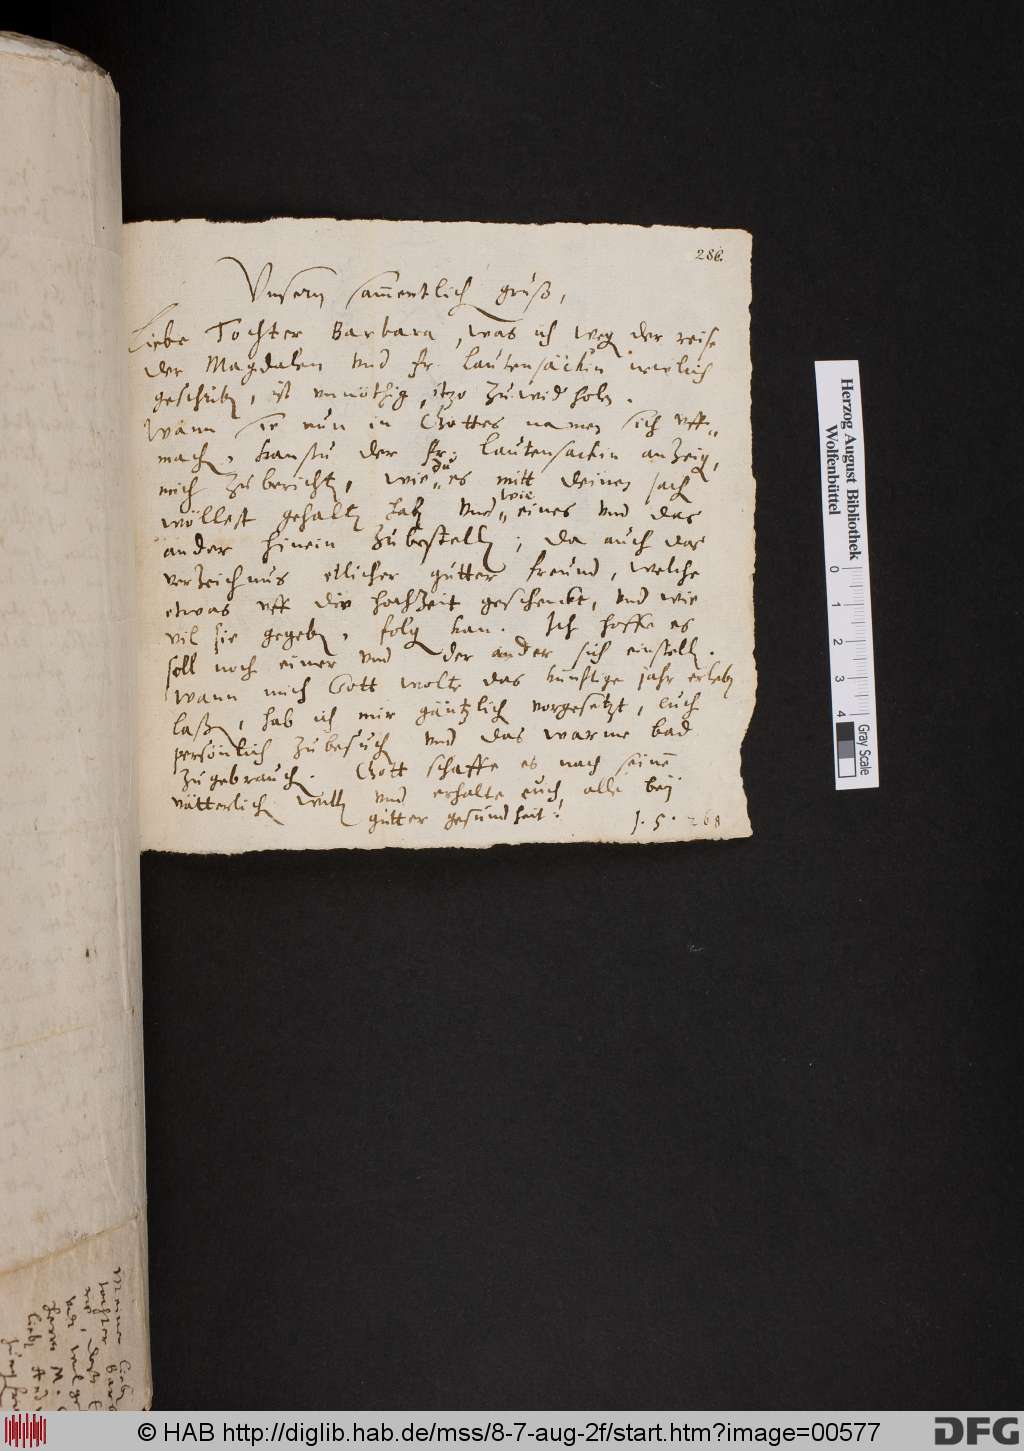 286.
Vnsern sam̄entlich gruß,
Liebe Tochter Barbara, was ich weg der reise
der Magdalen vnd fr. Lautensäckin newlich
geschriben, ist vnnöthig, itzo zuwid holn.
Wann sie nun in Gottes namen sich vff„
machen, kanstu der fr: Lautensackin anzeigen,
mich zuberichten, wie du es mitt deinen sachen
wöllest gehalten haben vnd wie eines vnd das
ander hinein zubestellen; da auch das
verzeichnus etlicher gutter freund, welche
etwas vff die hochzeit geschenckt, vnd wie
vil sie gegeben, folgen kan. Ich hoffe es
soll noch einer vnd der ander sich einstellen.
Wann mich Gott wolte das künftige jahr erleben
laßen, hab ich mir gäntzlich vorgesetzt, euch
persönlich zubesuchen vnd das warme bad
zugebrauchen. Gott schaffe es nach seinem̄
vätterlichen willen vnd erhalte euch alle beÿ
gutter gesundheit!
J. S. 268
Meiner lieben
tochter Barb
Herrn M.
Herzog August Bibliothek
Wolfenbüttel
0 1 2 3 4
Gray Scale
© HAB http://diglib.hab.de/mss/8-7-aug-2f/start.htm?image=00577
DFG